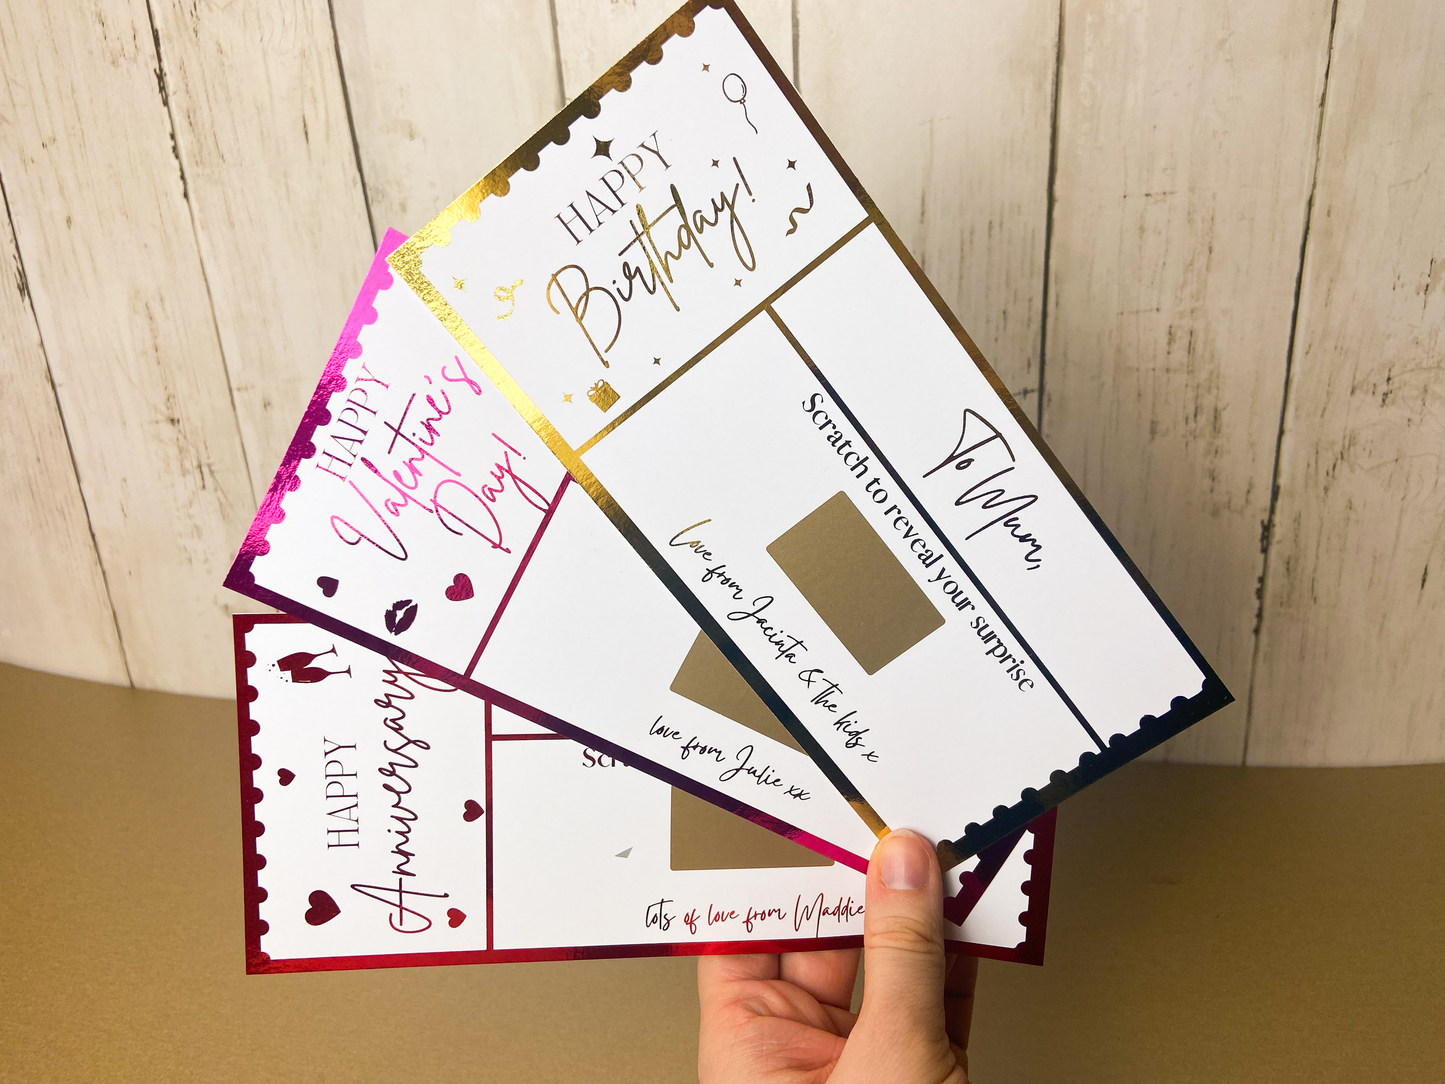 HAPPY
Birthday!
To Mum,
Scratch to reveal your surprise
love from Jacinta & the kids x
HAPPY
Valentine's
Day!
love from Julie xx
HAPPY
Anniversary
Scr
lots of love from Maddie